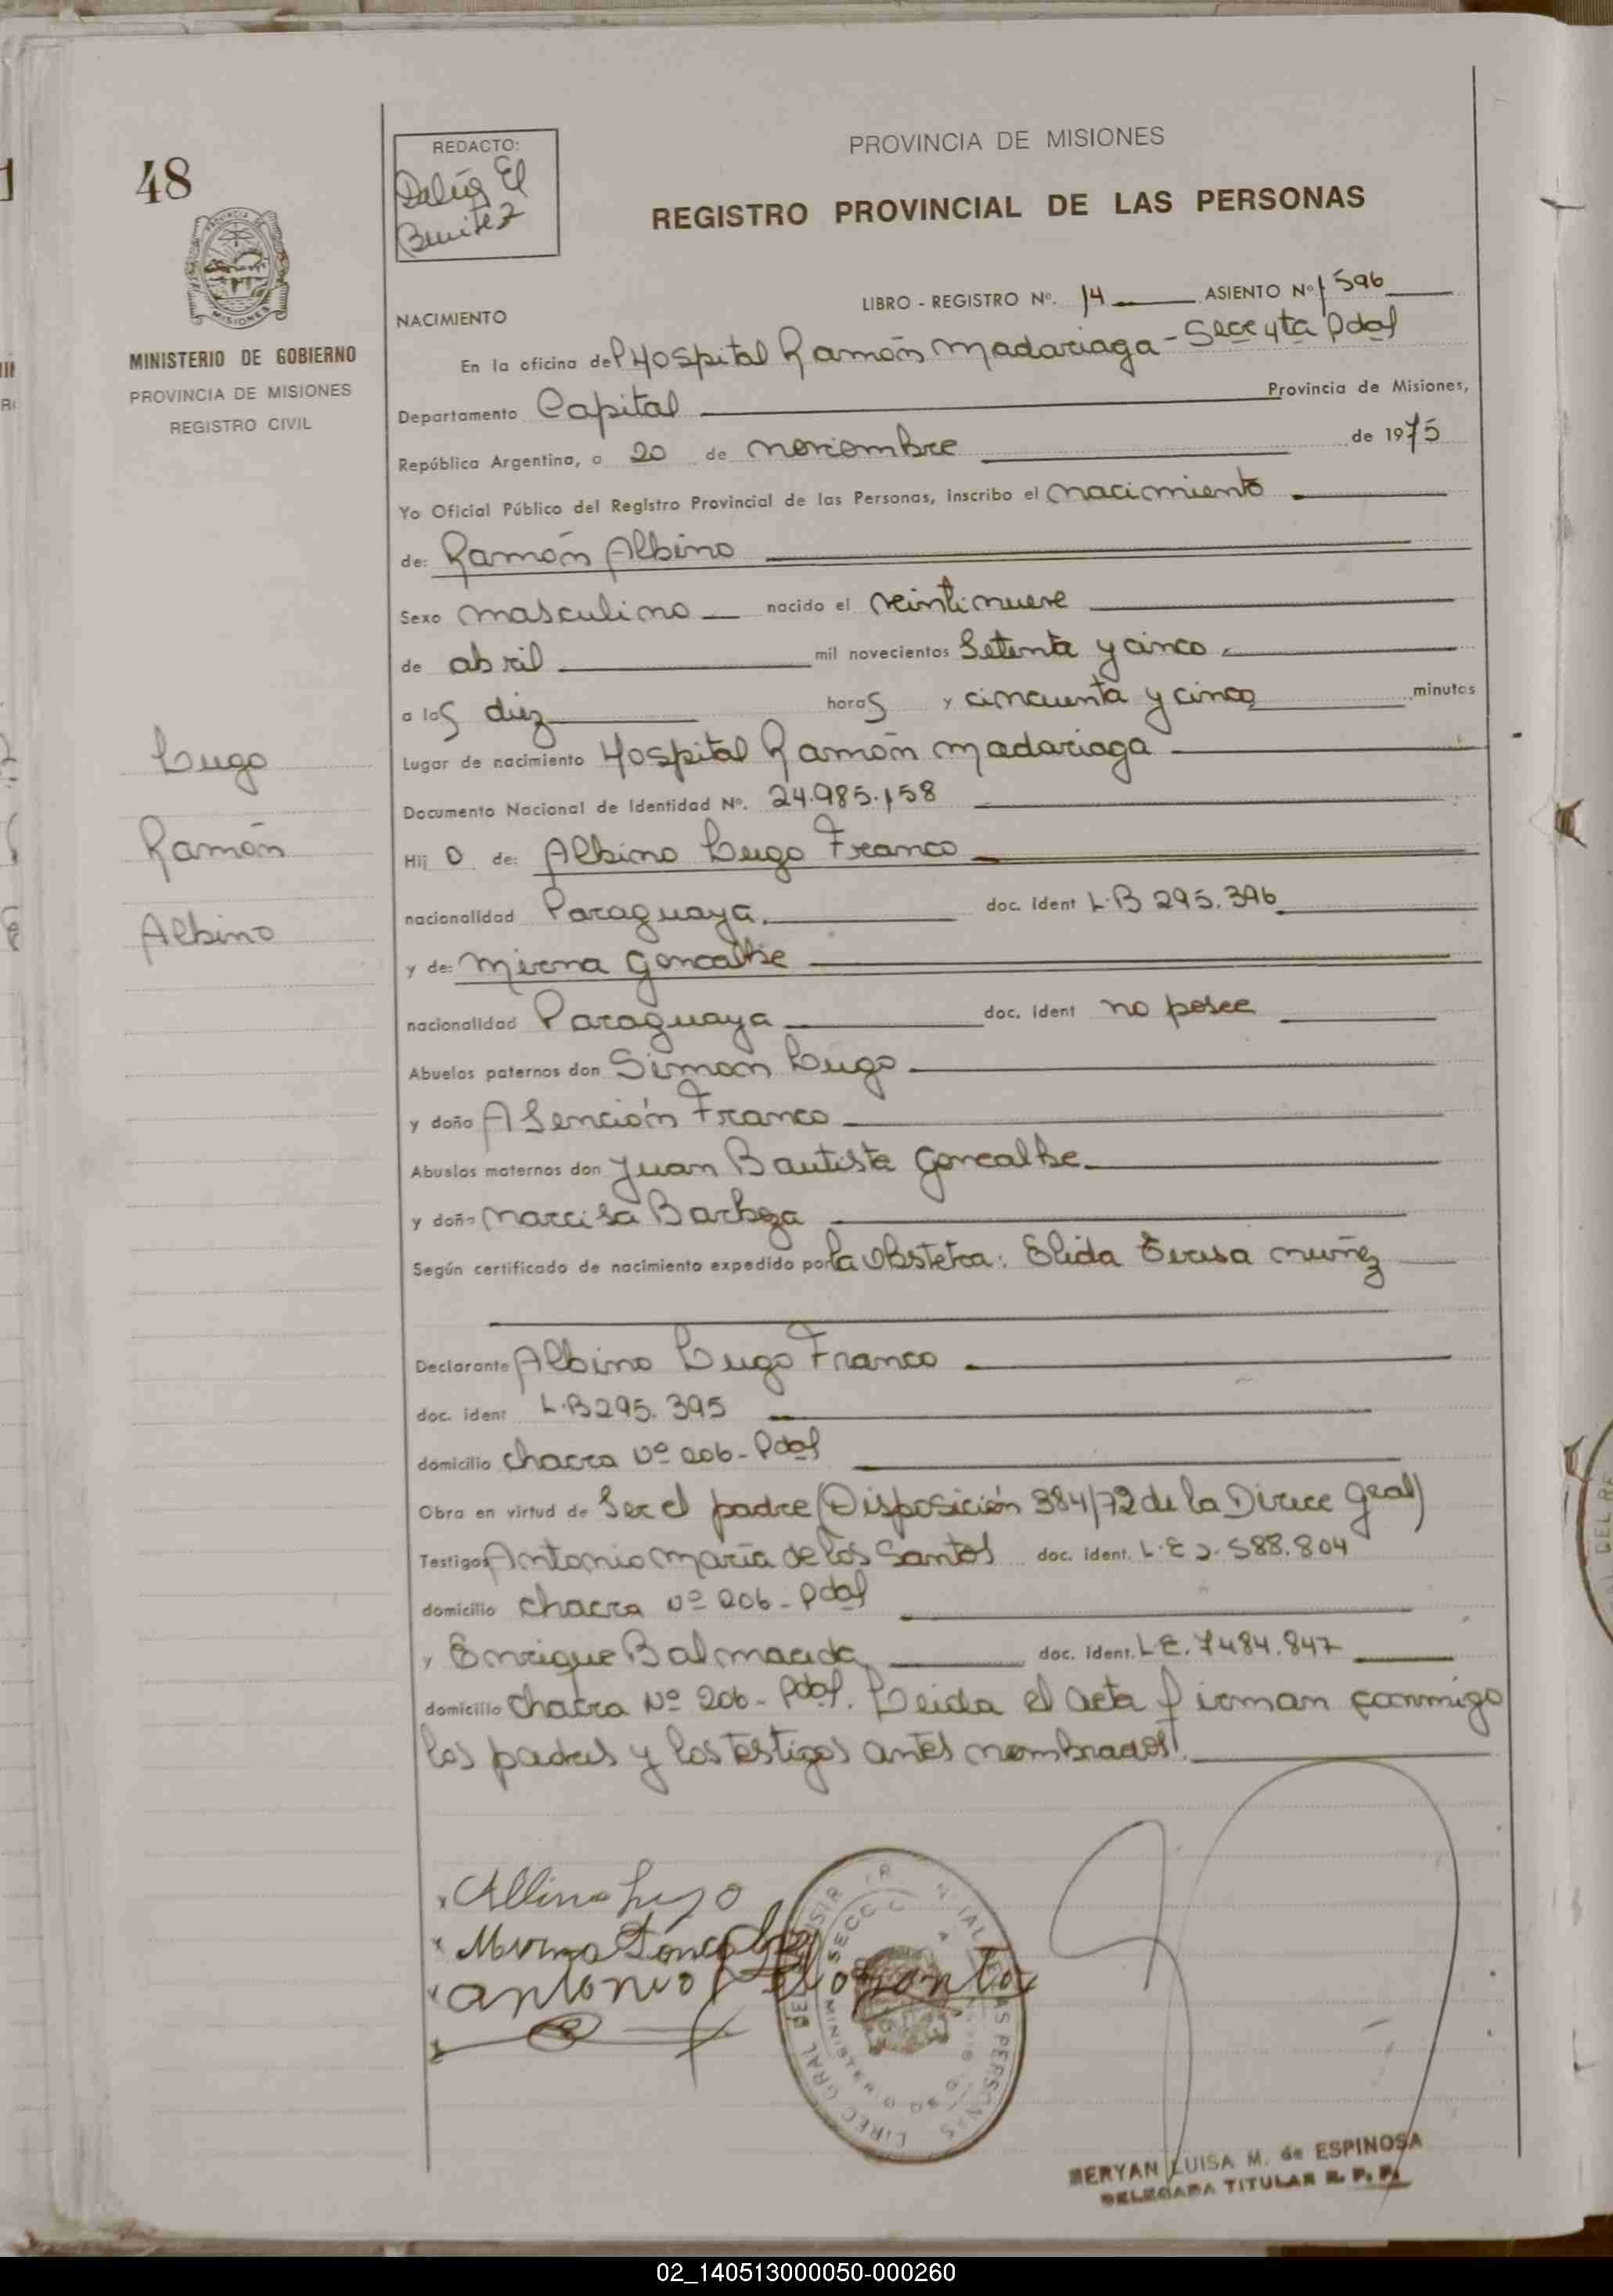 48
REDACTO:
Benitez
PROVINCIA DE MISIONES
REGISTRO PROVINCIAL DE LAS PERSONAS
PROVINCIA DE
MISIONES
MINISTERIO DE GOBIERNO
PROVINCIA DE MISIONES
REGISTRO CIVIL
LIBRO - REGISTRO Nº. 14 ASIENTO Nº 1596
NACIMIENTO
En la oficina del Hospital Ramón Madariaga - Secc 4ta Pdas
Departamento Capital Provincia de Misiones,
República Argentina, a 20 de noviembre de 1975
Yo Oficial Público del Registro Provincial de las Personas, inscribo el nacimiento
de: Ramón Albino
Sexo masculino nacido el veintinueve
de abril mil novecientos Setenta y cinco
a las diez horas y cincuenta y cinco minutos
Lugar de nacimiento Hospital Ramón Madariaga
Documento Nacional de Identidad Nº. 24.985.158
Lugo
Ramón
Albino
Hij o de: Albino Lugo Franco
nacionalidad Paraguaya. doc. ident L.B 295.396
y de: Mirna Goncalbe
nacionalidad Paraguaya doc. ident no posee
Abuelos paternos don Simon Lugo
y doña Asención Franco
Abuelos maternos don Juan Bautista Goncalbe
y doña Narcisa Barboza
Según certificado de nacimiento expedido por la Obstetra: Elida Teresa Nuñez
Declarante Albino Lugo Franco
doc. ident L.B 295.395
domicilio Chacra Nº 206 - Pdas
Obra en virtud de Ser el padre (Disposición 384/72 de la Direcc Gral)
Testigos Antonio María de los Santos doc. ident. L.E 2.588.804
domicilio Chacra Nº 206 - Pdas
y Enrique Balmaceda doc. ident. L.E. 7484.847
domicilio Chacra Nº 206 - Pdas. Leida el acta firman conmigo
los padres y los testigos antes nombrados.
Albino Lugo
Mirna Goncalbe
Antonio
MERYAN LUISA M. de ESPINOSA
DELEGADA TITULAR R. P. P.
02_140513000050-000260